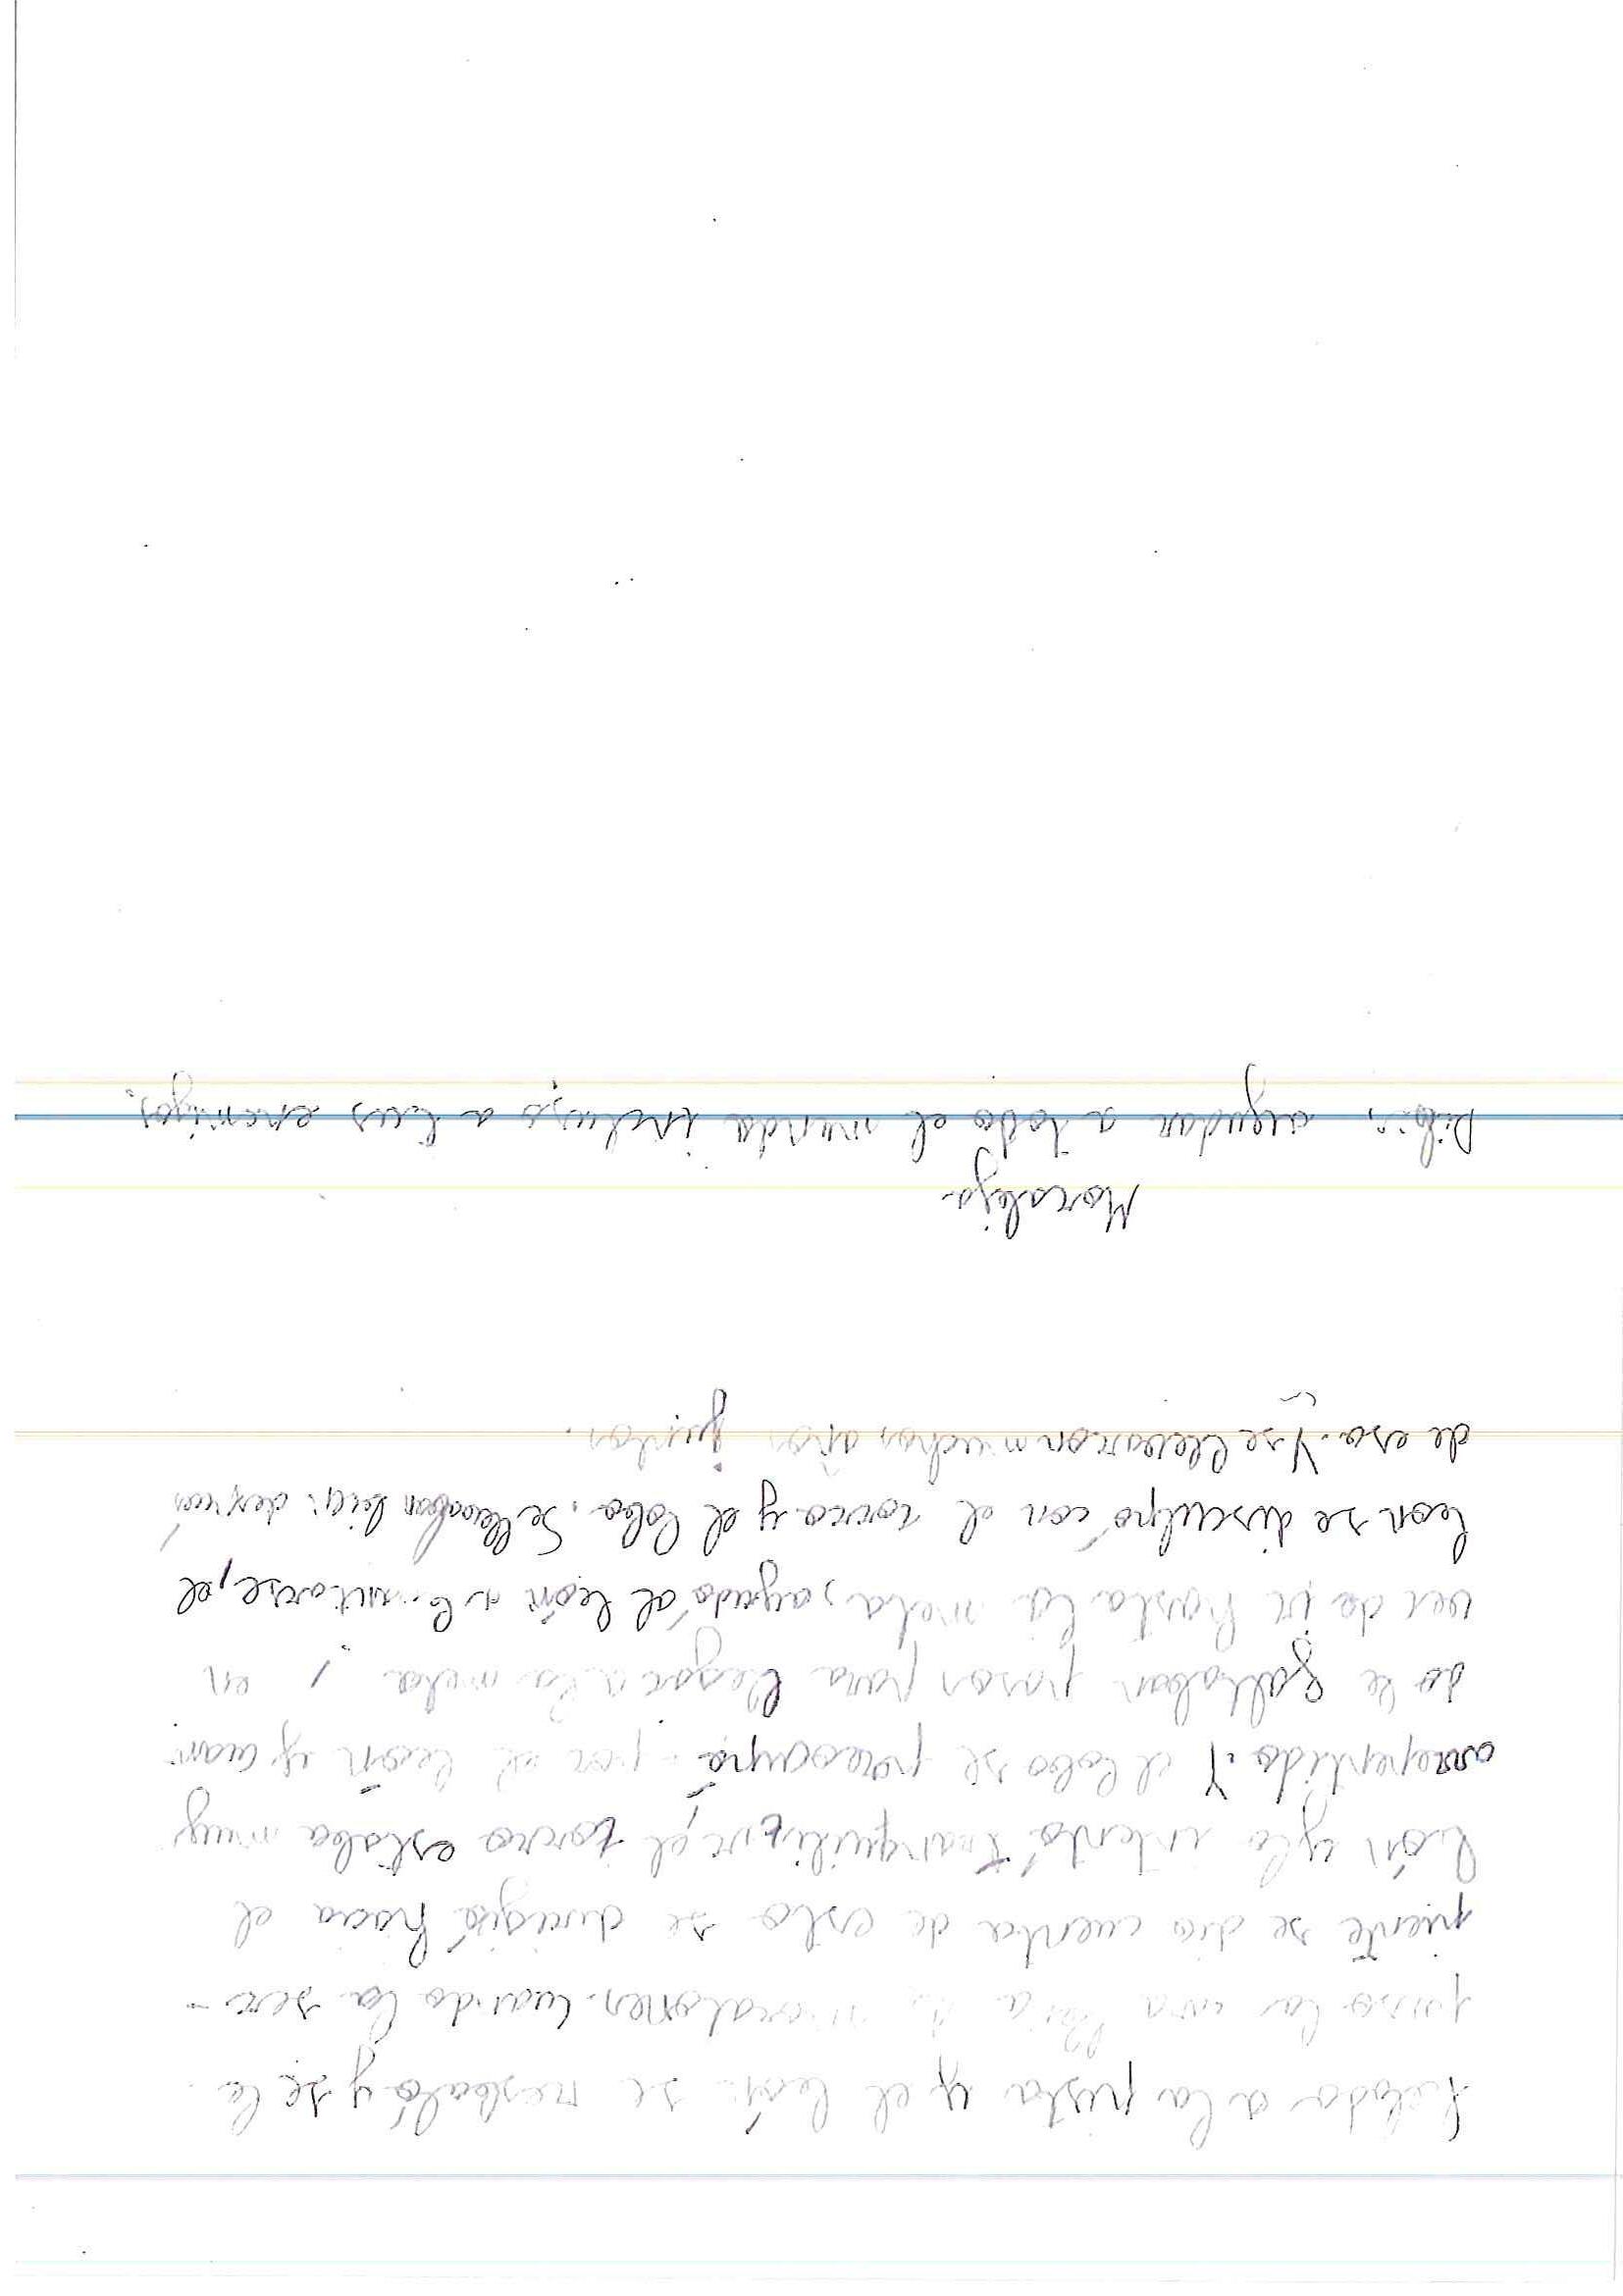 helado a la pista y el león se resbaló y se la
puso la una de moratones. Cuando la ser-
piente se dio cuenta de esto se dirigió hacia el
león y lo intentó tranquilizar, el zorro estaba muy
arrepentido. Y el lobo se preocupó por el león y cuan-
do le faltaban pasos para llegar a la meta, en
vez de ir hasta la meta, ayudó al león a levantarse, el
leon se disculpó con el zorro y el lobo. Se llevaban bien después
de eso. Y se llevaron muchos años juntos.
Moraleja
ayudar a todo el mundo incluso a tus enemigos.